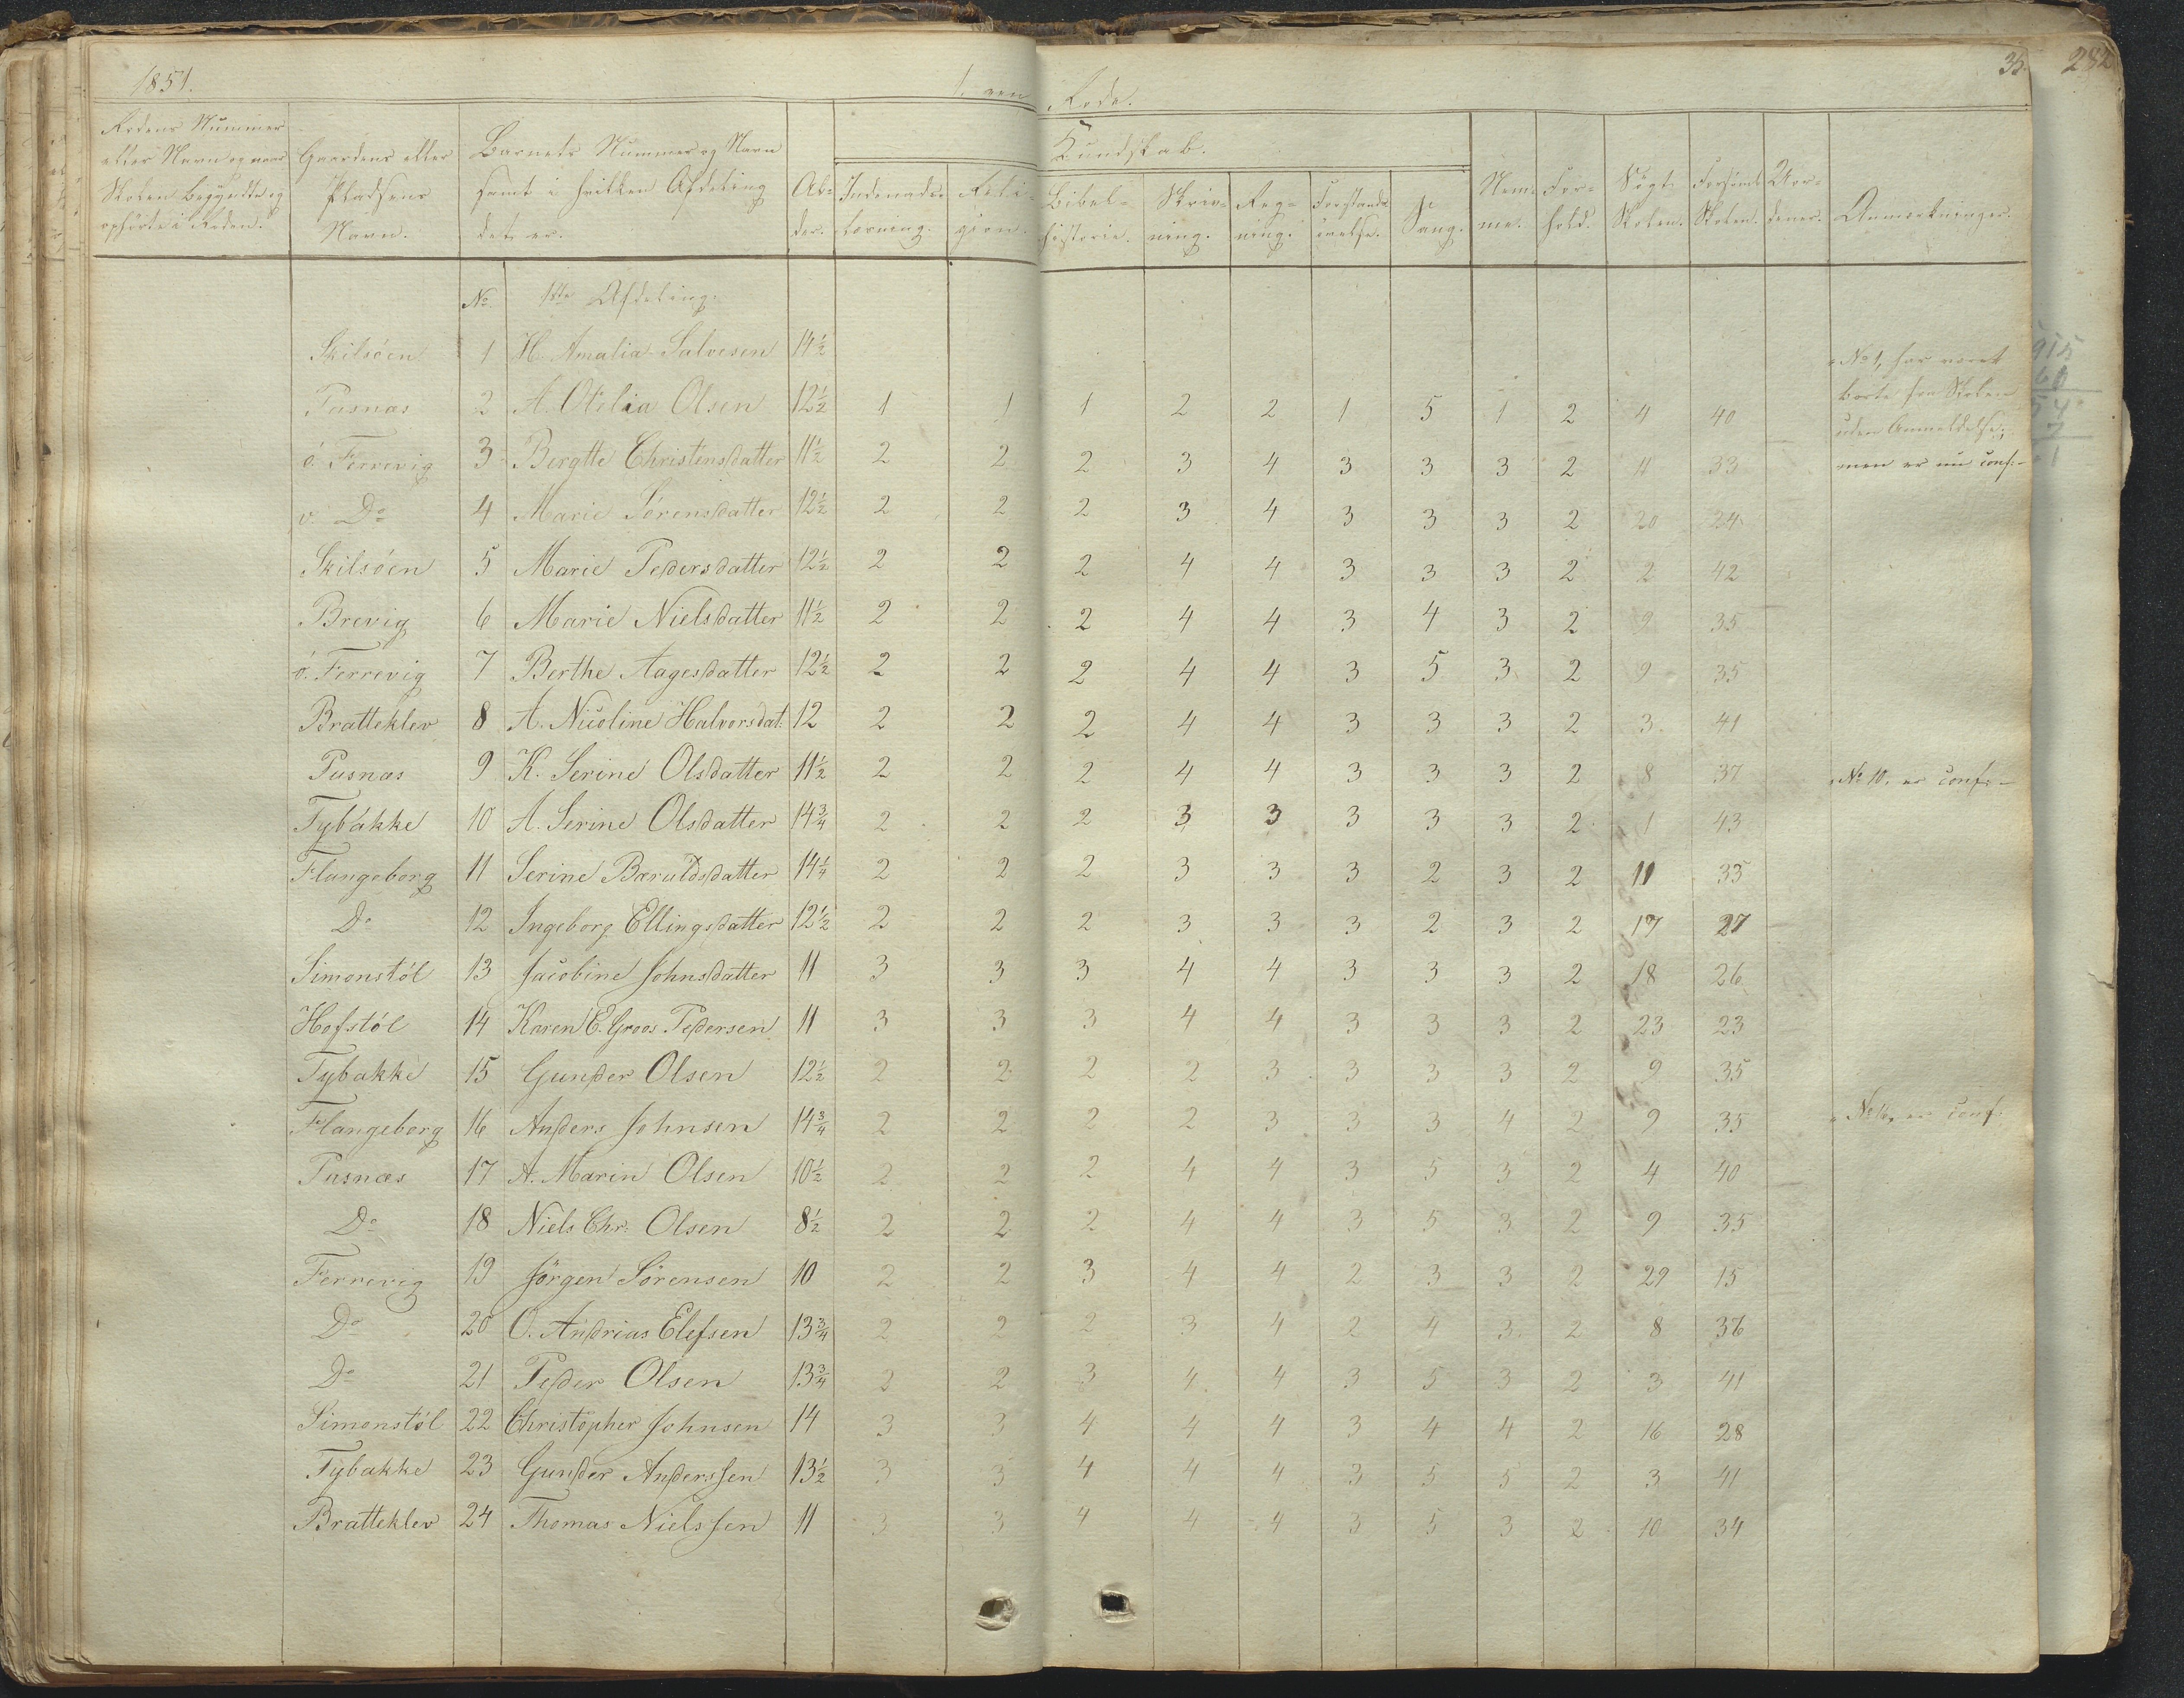 1851. 1. ven Rode. 35. 282
Rodens Nummer eller Navn og naar Skolen begyndte og ophørte i Roden.
Gaardens eller Pladsens Navn.
Barnets Nummer og Navn samt i hvilken Afdeling det er.
Al-der.
Indenadslæsning.
Religion.
Kundskab.
Bibel-historie.
Skriv-ning.
Reg-ning.
Forstands-øvelse.
Sang.
Nem-me.
For-hold.
Søgt Skolen.
Forsømt Skolen.
Uor-dener.
Anmærkninger.
No 1ste Afdeling.
Skilsöen 1 H. Amalia Salvesen 14½ No 1, har været
Pusnæs 2 A. Otelia Olsen 12½ 1 1 1 2 2 1 5 1 2 4 40 borte fra Skolen
ö. Ferrevig 3 Bergtte Christensdatter 11½ 2 2 2 3 4 3 3 3 2 11 33 uden Anmeldelse;
v. Do 4 Marie Sørensdatter 12½ 2 2 2 3 4 3 3 3 2 20 24 men er nu conf:
Skilsöen 5 Marie Pedersdatter 12½ 2 2 2 4 4 3 3 3 2 2 42
Brevig 6 Marie Nielsdatter 11½ 2 2 2 4 4 3 4 3 2 9 35
ö. Ferrevig 7 Berthe Aagesdatter 12½ 2 2 2 4 4 3 5 3 2 9 35
Bratteklev 8 A. Nicoline Halvorsdat. 12 2 2 2 4 4 3 3 3 2 3 41
Pusnæs 9 K. Serine Olsdatter 11½ 2 2 2 4 4 3 3 3 2 8 37
Tybakke 10 A. Serine Olsdatter 14¾ 2 2 2 3 3 3 3 3 2 1 43 No 10. er conf:
Flangeborg 11 Serine Baruldsdatter 14¼ 2 2 2 3 3 3 2 3 2 11 33
Do 12 Ingeborg Ellingsdatter 12½ 2 2 2 3 3 3 2 3 2 17 27
Simonstöl 13 Jacobine Johnsdatter 11 3 3 3 4 4 3 3 3 2 18 26
Hofstöl 14 Karen E. Groos Pedersen 11 3 3 3 4 4 3 3 3 2 23 23
Tybakke 15 Gunder Olsen 12½ 2 2 2 2 3 3 3 3 2 9 35
Flangeborg 16 Anders Johnsen 14¾ 2 2 2 2 3 3 3 4 2 9 35 No 16, er conf:
Pusnæs 17 A. Marin Olsen 10½ 2 2 2 4 4 3 5 3 2 4 40
Do 18 Niels Chr: Olsen 8½ 2 2 2 4 4 3 5 3 2 9 35
Ferrevig 19 Jörgen Sörensen 10 2 2 3 4 4 2 3 3 2 29 15
Do 20 O. Andrias Elefsen 13¾ 2 2 2 3 4 2 4 3 2 8 36
Do 21 Peder Olsen 13¾ 2 2 3 4 4 3 5 3 2 3 41
Simonstöl 22 Christopher Johnsen 14 3 3 4 4 4 3 4 4 2 16 28
Tybakke 23 Gunder Anderssen 13½ 3 3 4 4 4 3 5 5 2 3 41
Bratteklev 24 Thomas Nielssen 11 3 3 4 4 4 3 5 3 2 10 34